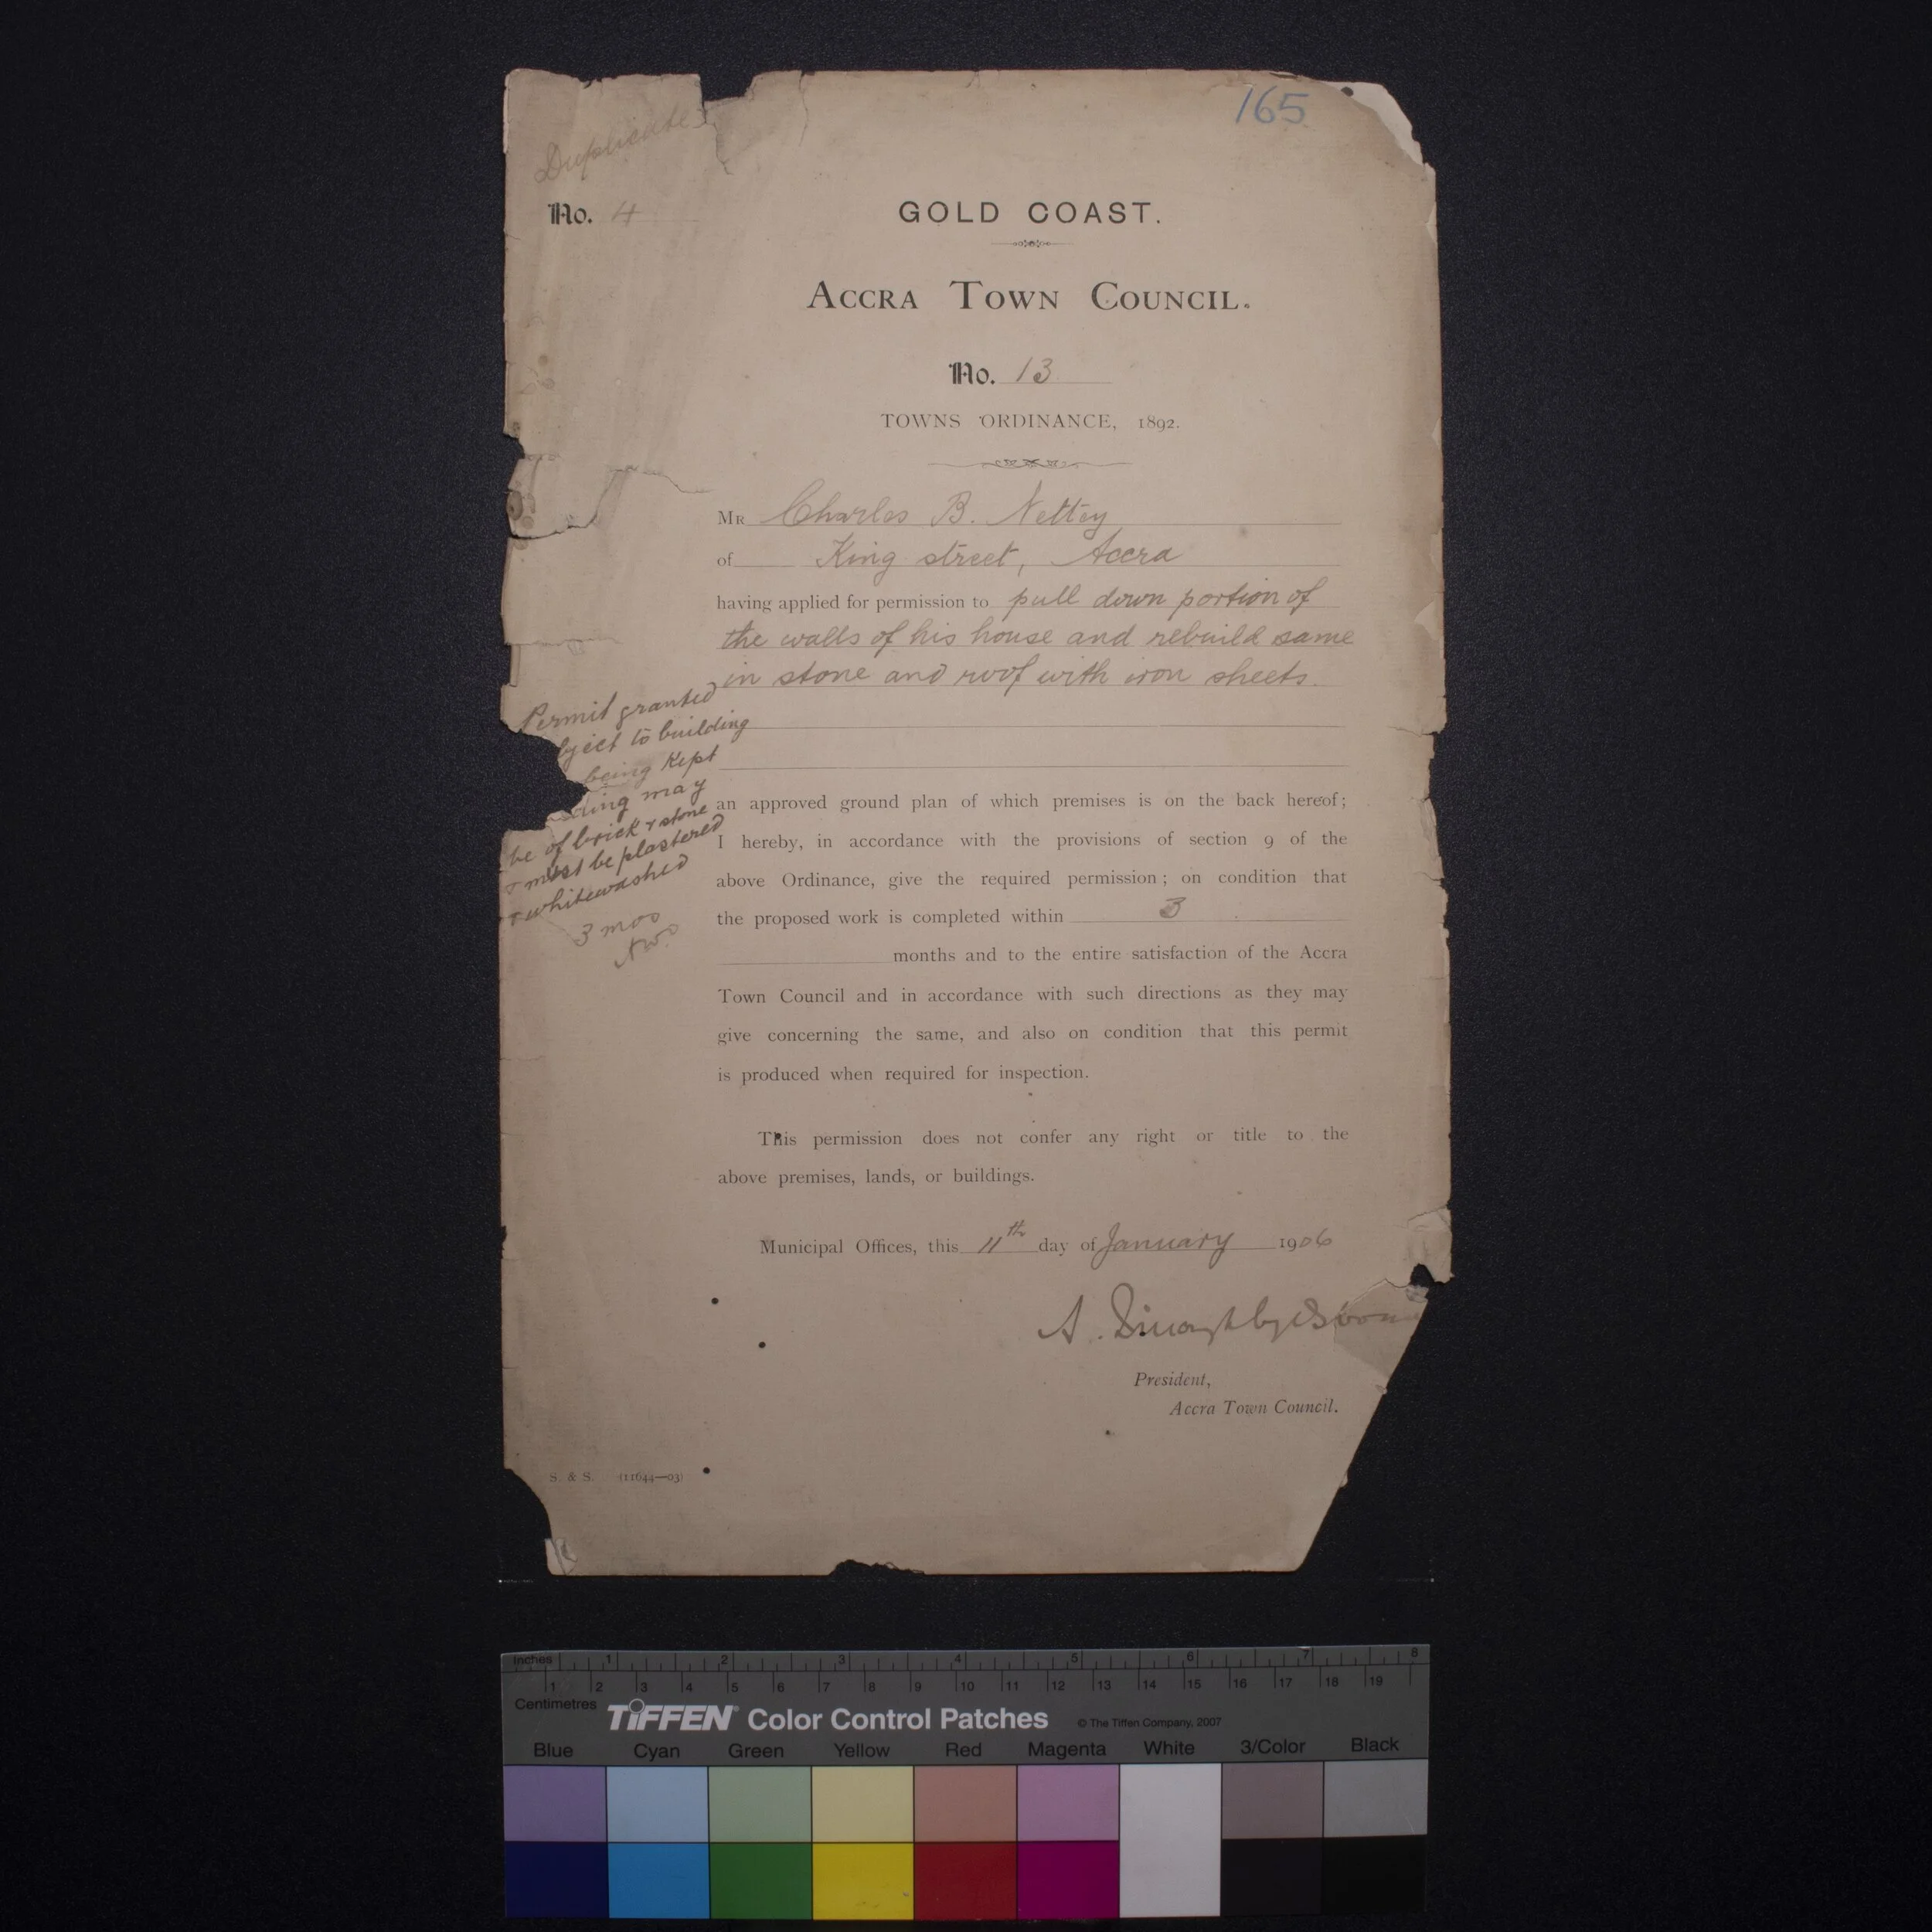 165
Duplicate
No. 4
GOLD COAST.
ACCRA TOWN COUNCIL.
No. 13
TOWNS ORDINANCE, 1892.
MR Charles B. Nettey
of King street, Accra
having applied for permission to pull down portion of
the walls of his house and rebuild same
in stone and roof with iron sheets.
Permit granted
bject to building
being kept
ding may
be of brick & stone
& must be plastered
& whitewashed
3 mos
an approved ground plan of which premises is on the back hereof;
I hereby, in accordance with the provisions of section 9 of the
above Ordinance, give the required permission; on condition that
the proposed work is completed within 3
months and to the entire satisfaction of the Accra
Town Council and in accordance with such directions as they may
give concerning the same, and also on condition that this permit
is produced when required for inspection.
This permission does not confer any right or title to the
above premises, lands, or buildings.
Municipal Offices, this 11th day of January 1906
A.
President,
Accra Town Council.
S. & S. (11644—03)
Inches 1 2 3 4 5 6 7 8
1 2 3 4 5 6 7 8 9 10 11 12 13 14 15 16 17 18 19
Centimetres
TIFFEN Color Control Patches © The Tiffen Company, 2007
Blue Cyan Green Yellow Red Magenta White 3/Color Black